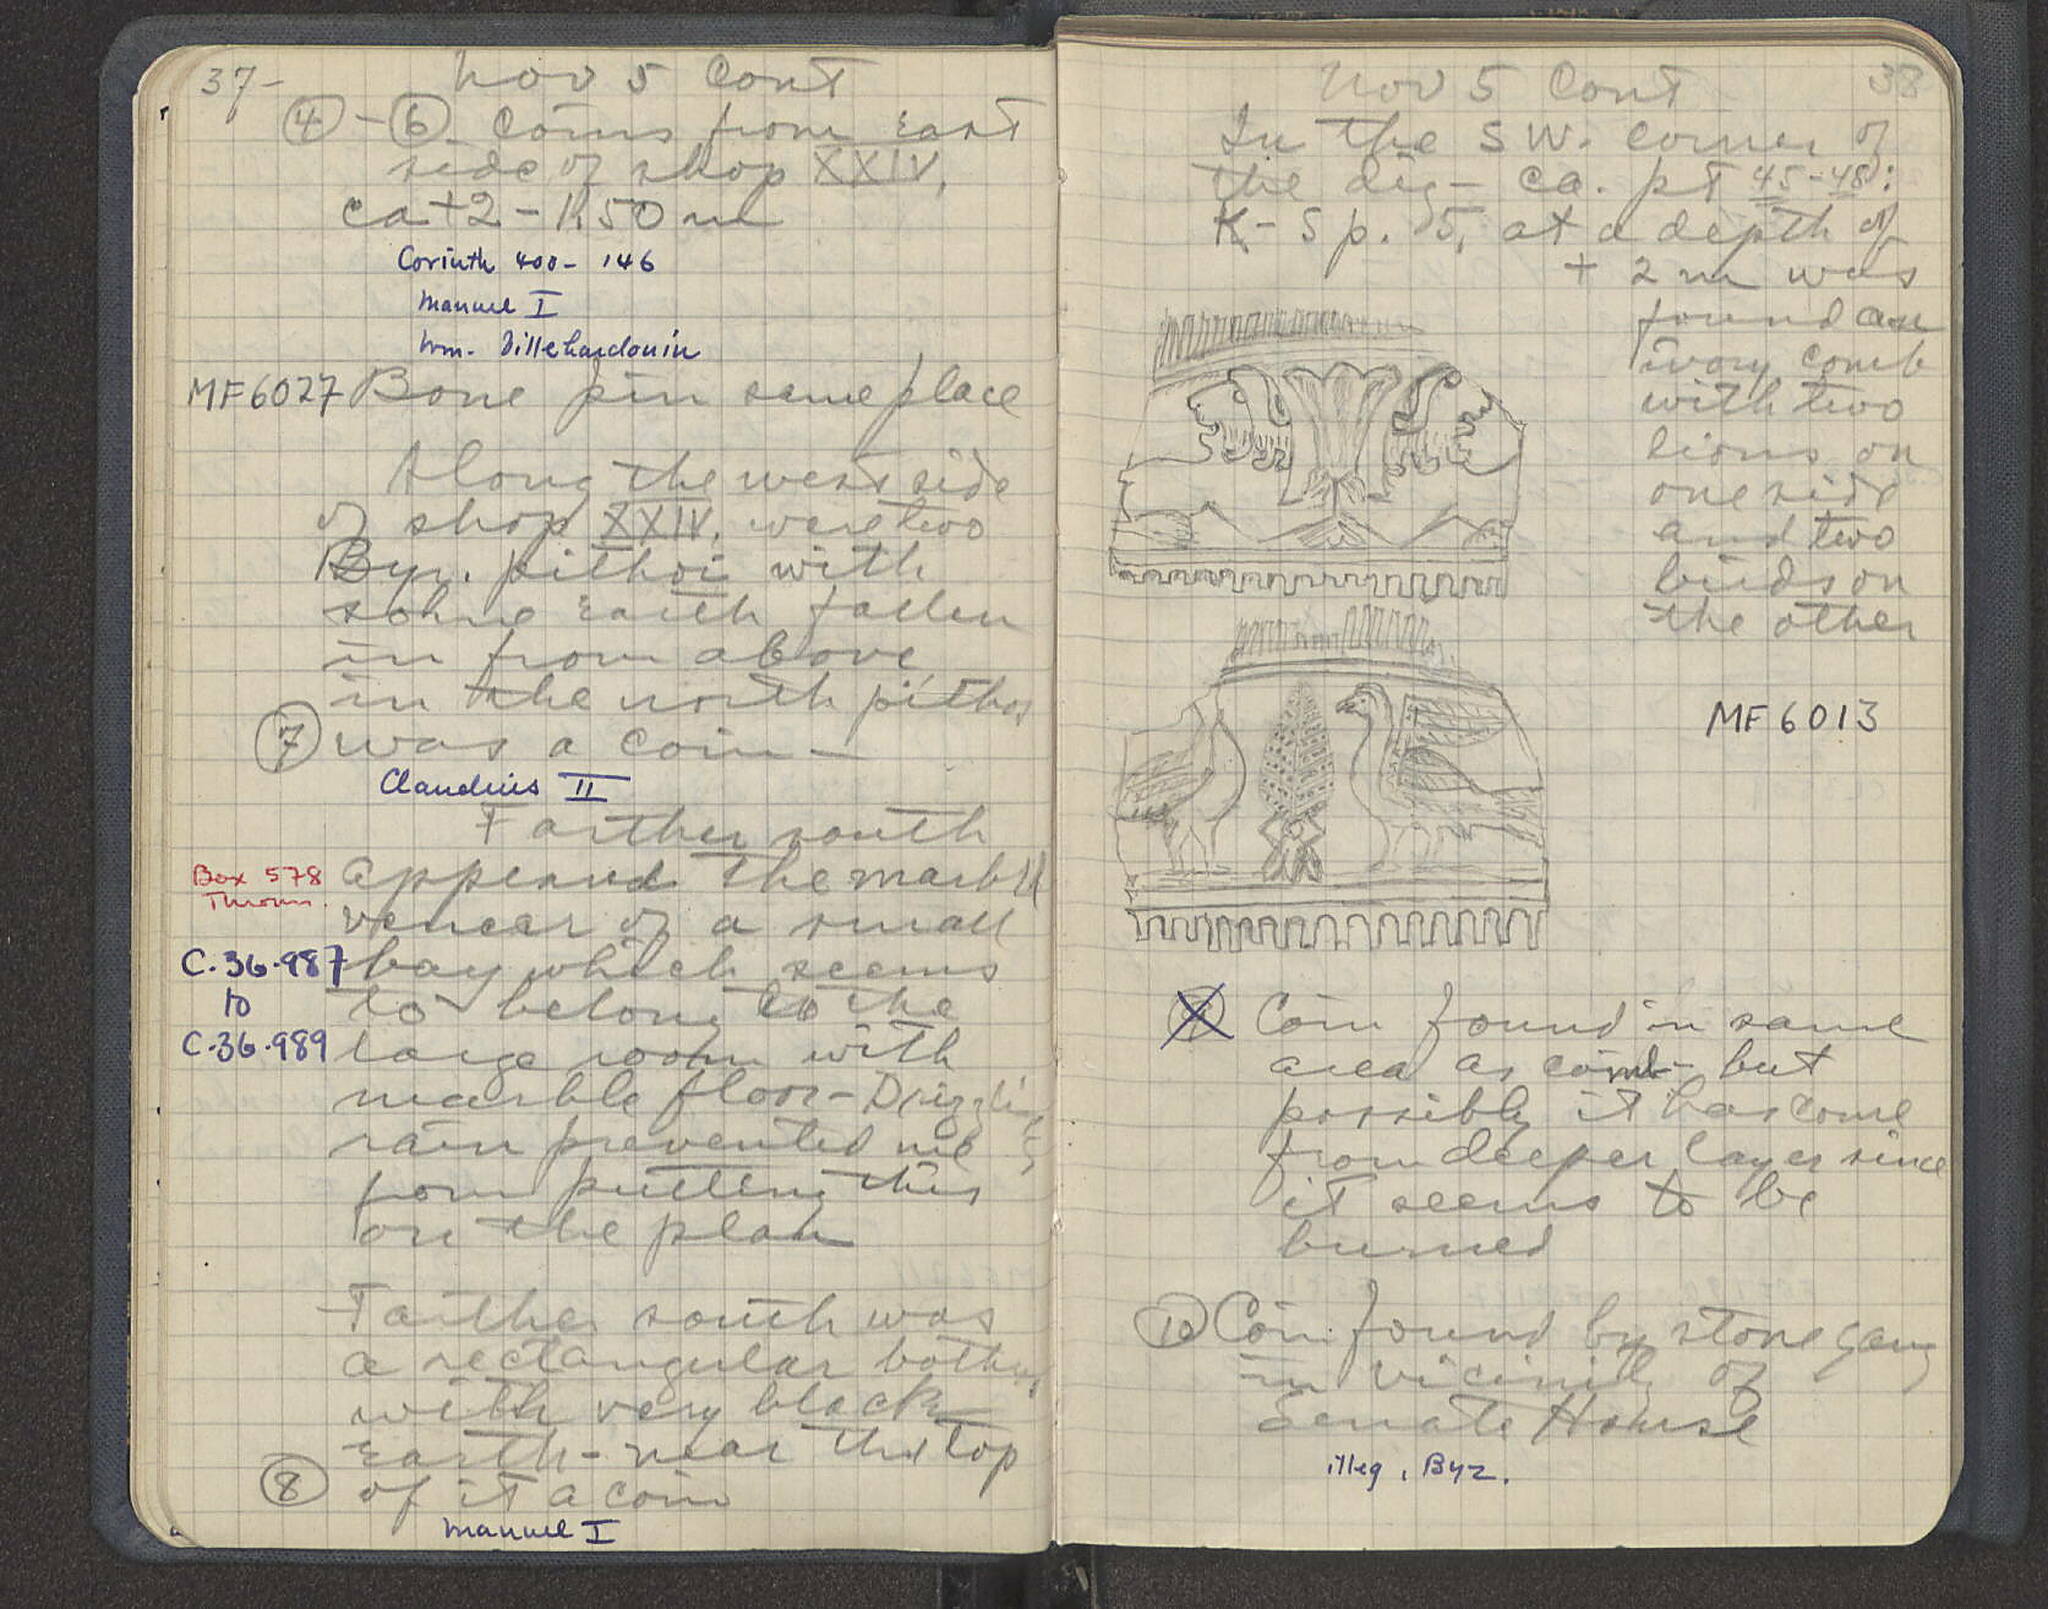 37-
Nov 5 Cont
④ - ⑥ Coins from East
side of shop XXIV,
ca +2 - 1.50 m
Corinth 400 - 146
Manuel I
Wm. Villehardouin
MF6027 Bone pin same place
Along the west side
of shop XXIV, were two
Byz. pithoi with
some earth fallen
in from above
in the north pithos
⑦ was a coin -
Claudius II
Farther south
Box 578
appeared the marble
Thrown.
veneer of a small
C.36.987 bay which seems
to
to belong to the
C.36.989 large room with
marble floor - Drizzling
rain prevented me
from putting this
on the plan
Farther south was
a rectangular bothros
with very black
earth - near the top
⑧ of it a coin
Manuel I
38
Nov 5 Cont
In the SW. corner of
the dig - ca. pt 45-48:
K - S p. 5, at a depth of
+ 2 m was
found an
ivory comb
with two
lions on
one side
and two
birds on
the other
MF 6013
Coin found in same
area as comb - but
possibly it has come
from deeper layer since
it seems to be
burned
⑩ Coin found by stone gang
in vicinity of
Senate House
illeg, Byz.